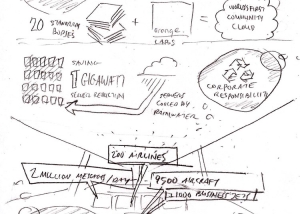 20
STANDARD
BUSES
+
orange
LABS
=
WORLDS FIRST
COMMUNITY
CLOUD
SAVING
1 GIGAWATT
POWER REDUCTION
SERVERS
COOLED BY
RAINWATER
CORPORATE
RESPONSIBILITY
200 AIRLINES
2 MILLION MESSAGES/DAY
9500 AIRCRAFT
1000 BUSINESS JETS